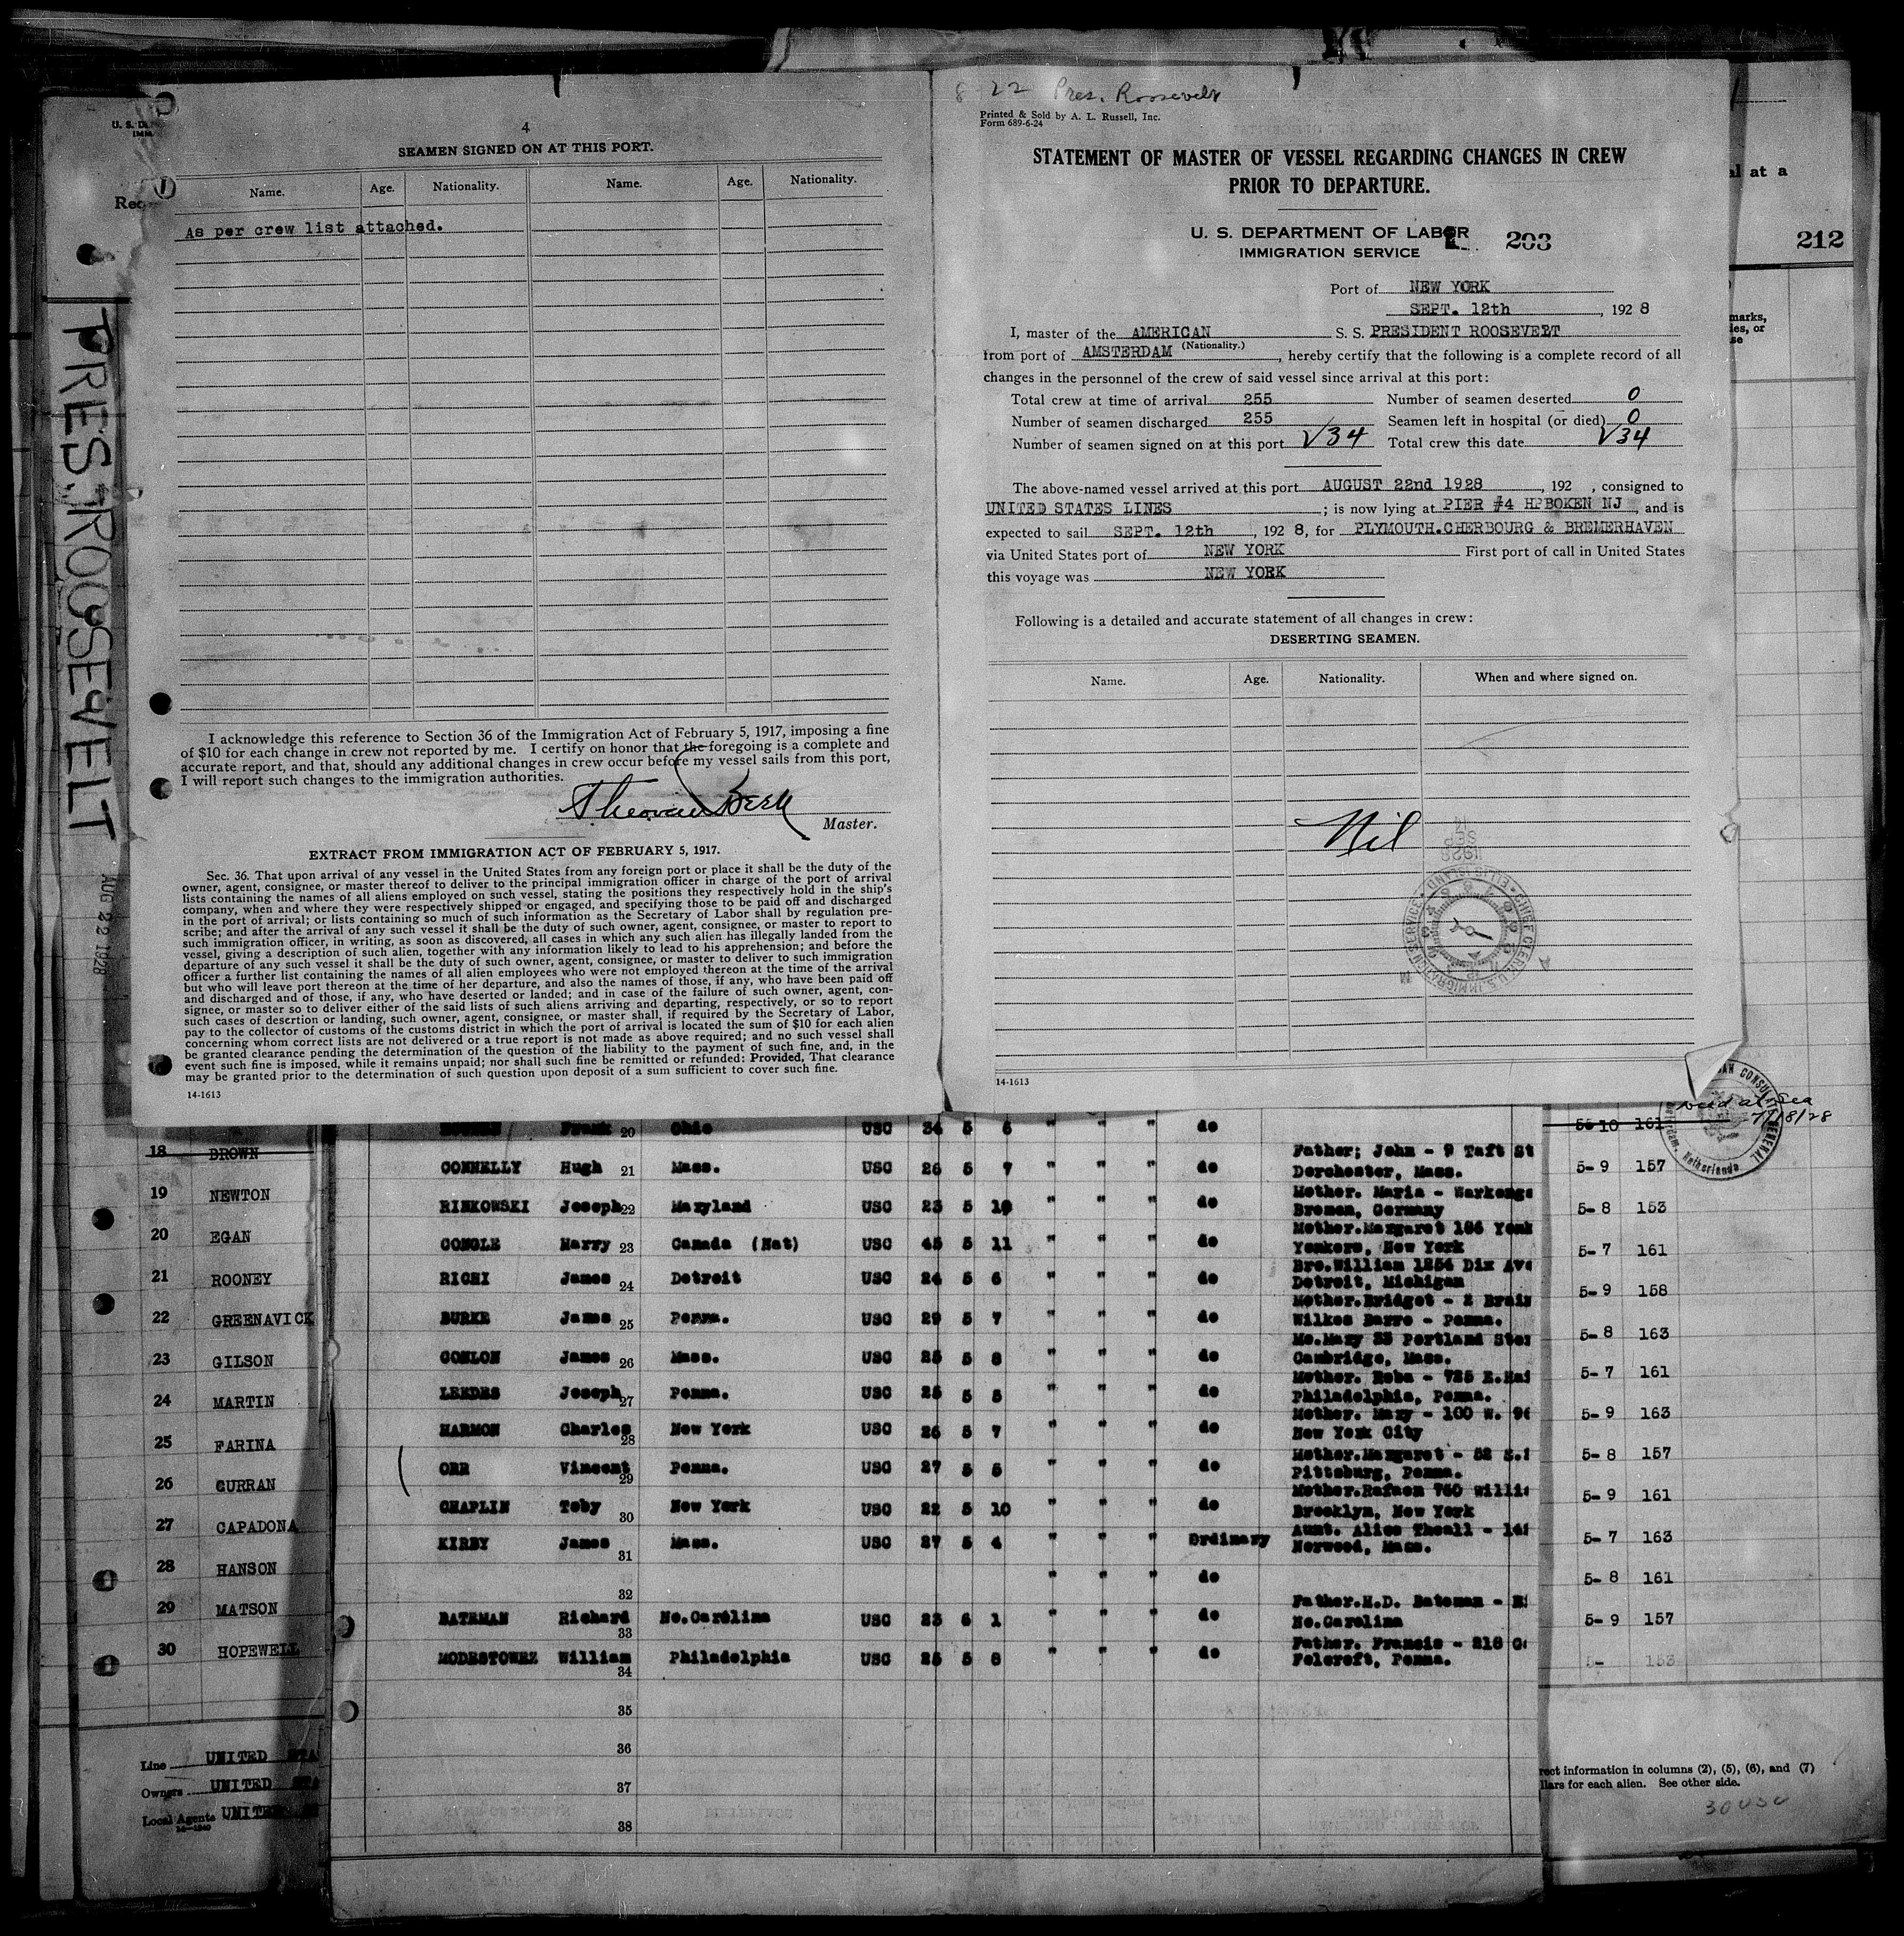 U. S. D
IMM
Rec
PRES. ROOSEVELT
AUG 22 1928
4
SEAMEN SIGNED ON AT THIS PORT.
Name. Age. Nationality. Name. Age. Nationality.
As per crew list attached.
I acknowledge this reference to Section 36 of the Immigration Act of February 5, 1917, imposing a fine
of $10 for each change in crew not reported by me. I certify on honor that the foregoing is a complete and
accurate report, and that, should any additional changes in crew occur before my vessel sails from this port,
I will report such changes to the immigration authorities.
Master.
EXTRACT FROM IMMIGRATION ACT OF FEBRUARY 5, 1917.
Sec. 36. That upon arrival of any vessel in the United States from any foreign port or place it shall be the duty of the
owner, agent, consignee, or master thereof to deliver to the principal immigration officer in charge of the port of arrival
lists containing the names of all aliens employed on such vessel, stating the positions they respectively hold in the ship's
company, when and where they were respectively shipped or engaged, and specifying those to be paid off and discharged
in the port of arrival; or lists containing so much of such information as the Secretary of Labor shall by regulation pre-
scribe; and after the arrival of any such vessel it shall be the duty of such owner, agent, consignee, or master to report to
such immigration officer, in writing, as soon as discovered, all cases in which any such alien has illegally landed from the
vessel, giving a description of such alien, together with any information likely to lead to his apprehension; and before the
departure of any such vessel it shall be the duty of such owner, agent, consignee, or master to deliver to such immigration
officer a further list containing the names of all alien employees who were not employed thereon at the time of the arrival
but who will leave port thereon at the time of her departure, and also the names of those, if any, who have been paid off
and discharged and of those, if any, who have deserted or landed; and in case of the failure of such owner, agent, con-
signee, or master so to deliver either of the said lists of such aliens arriving and departing, respectively, or so to report
such cases of desertion or landing, such owner, agent, consignee, or master shall, if required by the Secretary of Labor,
pay to the collector of customs of the customs district in which the port of arrival is located the sum of $10 for each alien
concerning whom correct lists are not delivered or a true report is not made as above required; and no such vessel shall
be granted clearance pending the determination of the question of the liability to the payment of such fine, and, in the
event such fine is imposed, while it remains unpaid; nor shall such fine be remitted or refunded: Provided, That clearance
may be granted prior to the determination of such question upon deposit of a sum sufficient to cover such fine.
14-1613
8 22 Pres. Roosevelt
Printed & Sold by A. L. Russell, Inc.
Form 689-6-24
STATEMENT OF MASTER OF VESSEL REGARDING CHANGES IN CREW
PRIOR TO DEPARTURE.
U. S. DEPARTMENT OF LABOR
IMMIGRATION SERVICE
203
Port of NEW YORK
SEPT. 12th, 1928
I, master of the AMERICAN S. S. PRESIDENT ROOSEVELT
(Nationality.)
from port of AMSTERDAM, hereby certify that the following is a complete record of all
changes in the personnel of the crew of said vessel since arrival at this port:
Total crew at time of arrival 255 Number of seamen deserted 0
Number of seamen discharged 255 Seamen left in hospital (or died) 0
Number of seamen signed on at this port √34 Total crew this date √34
The above-named vessel arrived at this port AUGUST 22nd 1928, 192 , consigned to
UNITED STATES LINES; is now lying at PIER #4 HPBOKEN NJ, and is
expected to sail SEPT. 12th, 1928, for PLYMOUTH.CHERBOURG & BREMERHAVEN
via United States port of NEW YORK First port of call in United States
this voyage was NEW YORK
Following is a detailed and accurate statement of all changes in crew:
DESERTING SEAMEN.
Name. Age. Nationality. When and where signed on.
Nil
14-1613
al at a
212
marks,
ies, or
se
Died at Sea
7/18/28
18 BROWN
19 NEWTON
20 EGAN
21 ROONEY
22 GREENAVICK
23 GILSON
24 MARTIN
25 FARINA
26 CURRAN
27 CAPADONA
28 HANSON
29 MATSON
30 HOPEWELL
Line UNITED STA
Owners UNITED STA
Local Agents UNITED
Frank 20 Ohio USC 34 5 6 " " do
Father; John - 9 Taft St
CONNELLY Hugh 21 Mass. USC 26 5 7 " " " do Dorchester, Mass.
Mother. Maria -
RINKOWSKI Joseph 22 Maryland USC 23 5 10 " " " do Bremen, Germany
Mother.Margaret 186 Yonk
CONGLE Harry 23 Canada (Nat) USC 45 5 11 " " " do Yonkers, New York
Bro.William 1254 Dix Ave
RICHI James 24 Detroit USC 24 5 6 " " " do Detroit, Michigan
Mother.Bridget - 2
BURKE James 25 Penna. USC 29 5 7 " " " do Wilkes Barre - Penna.
Mo.Mary 35 Portland Ster
CONLON James 26 Mass. USC 25 5 8 " " " do Cambridge, Mass.
Mother. Reba - 725
LEEDES Joseph 27 Penna. USC 25 5 5 " " " do Philadelphia, Penna.
Mother. Mary - 100 W. 96
HARMON Charles 28 New York USC 26 5 7 " " " do New York City
Mother.Margaret - 52
ORR Vincent 29 Penna. USC 27 5 5 " " " do Pittsburg, Penna.
CHAPLIN Toby 30 New York USC 22 5 10 " " " do Brooklyn, New York
Aunt. Alice Theall - 141
KIRBY James 31 Mass. USC 27 5 4 " " " Ordinary Norwood, Mass.
32 " " " do
Father.H.D. Bateman -
BATEMAN Richard 33 No.Carolina USC 23 6 1 " " " do No.Carolina
Father. Francis - 218
MODESTOWEZ William 34 Philadelphia USC 25 5 8 " " " do Folcroft, Penna.
35
36
37
38
5-10 161
5-9 157
5-8 153
5-7 161
5-9 158
5-8 163
5-7 161
5-9 163
5-8 157
5-9 161
5-7 163
5-8 161
5-9 157
5- 153
rect information in columns (2), (5), (6), and (7)
llars for each alien. See other side.
30 USC